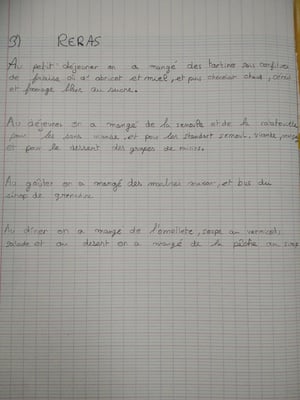 3) REPAS
Au petit déjeuner on a mangé des tartine sans confiture
de fraise ou d'abricot et miel, et puis chocolat chaud,
et fromage blanc au sucre.
Au déjeuner on a mangé de la semoule et de la ratatouille
pour les sans viande, et pour les standart semoul, viande,
et pour le dessert des grapes de raisins.
Au goûter on a mangé des moulines, et bus du
sirop de grenadine.
Au dîner on a mangé de l'omellete, soupe au vermicelle
salade et au désert on a mangé de la pêche au sirop